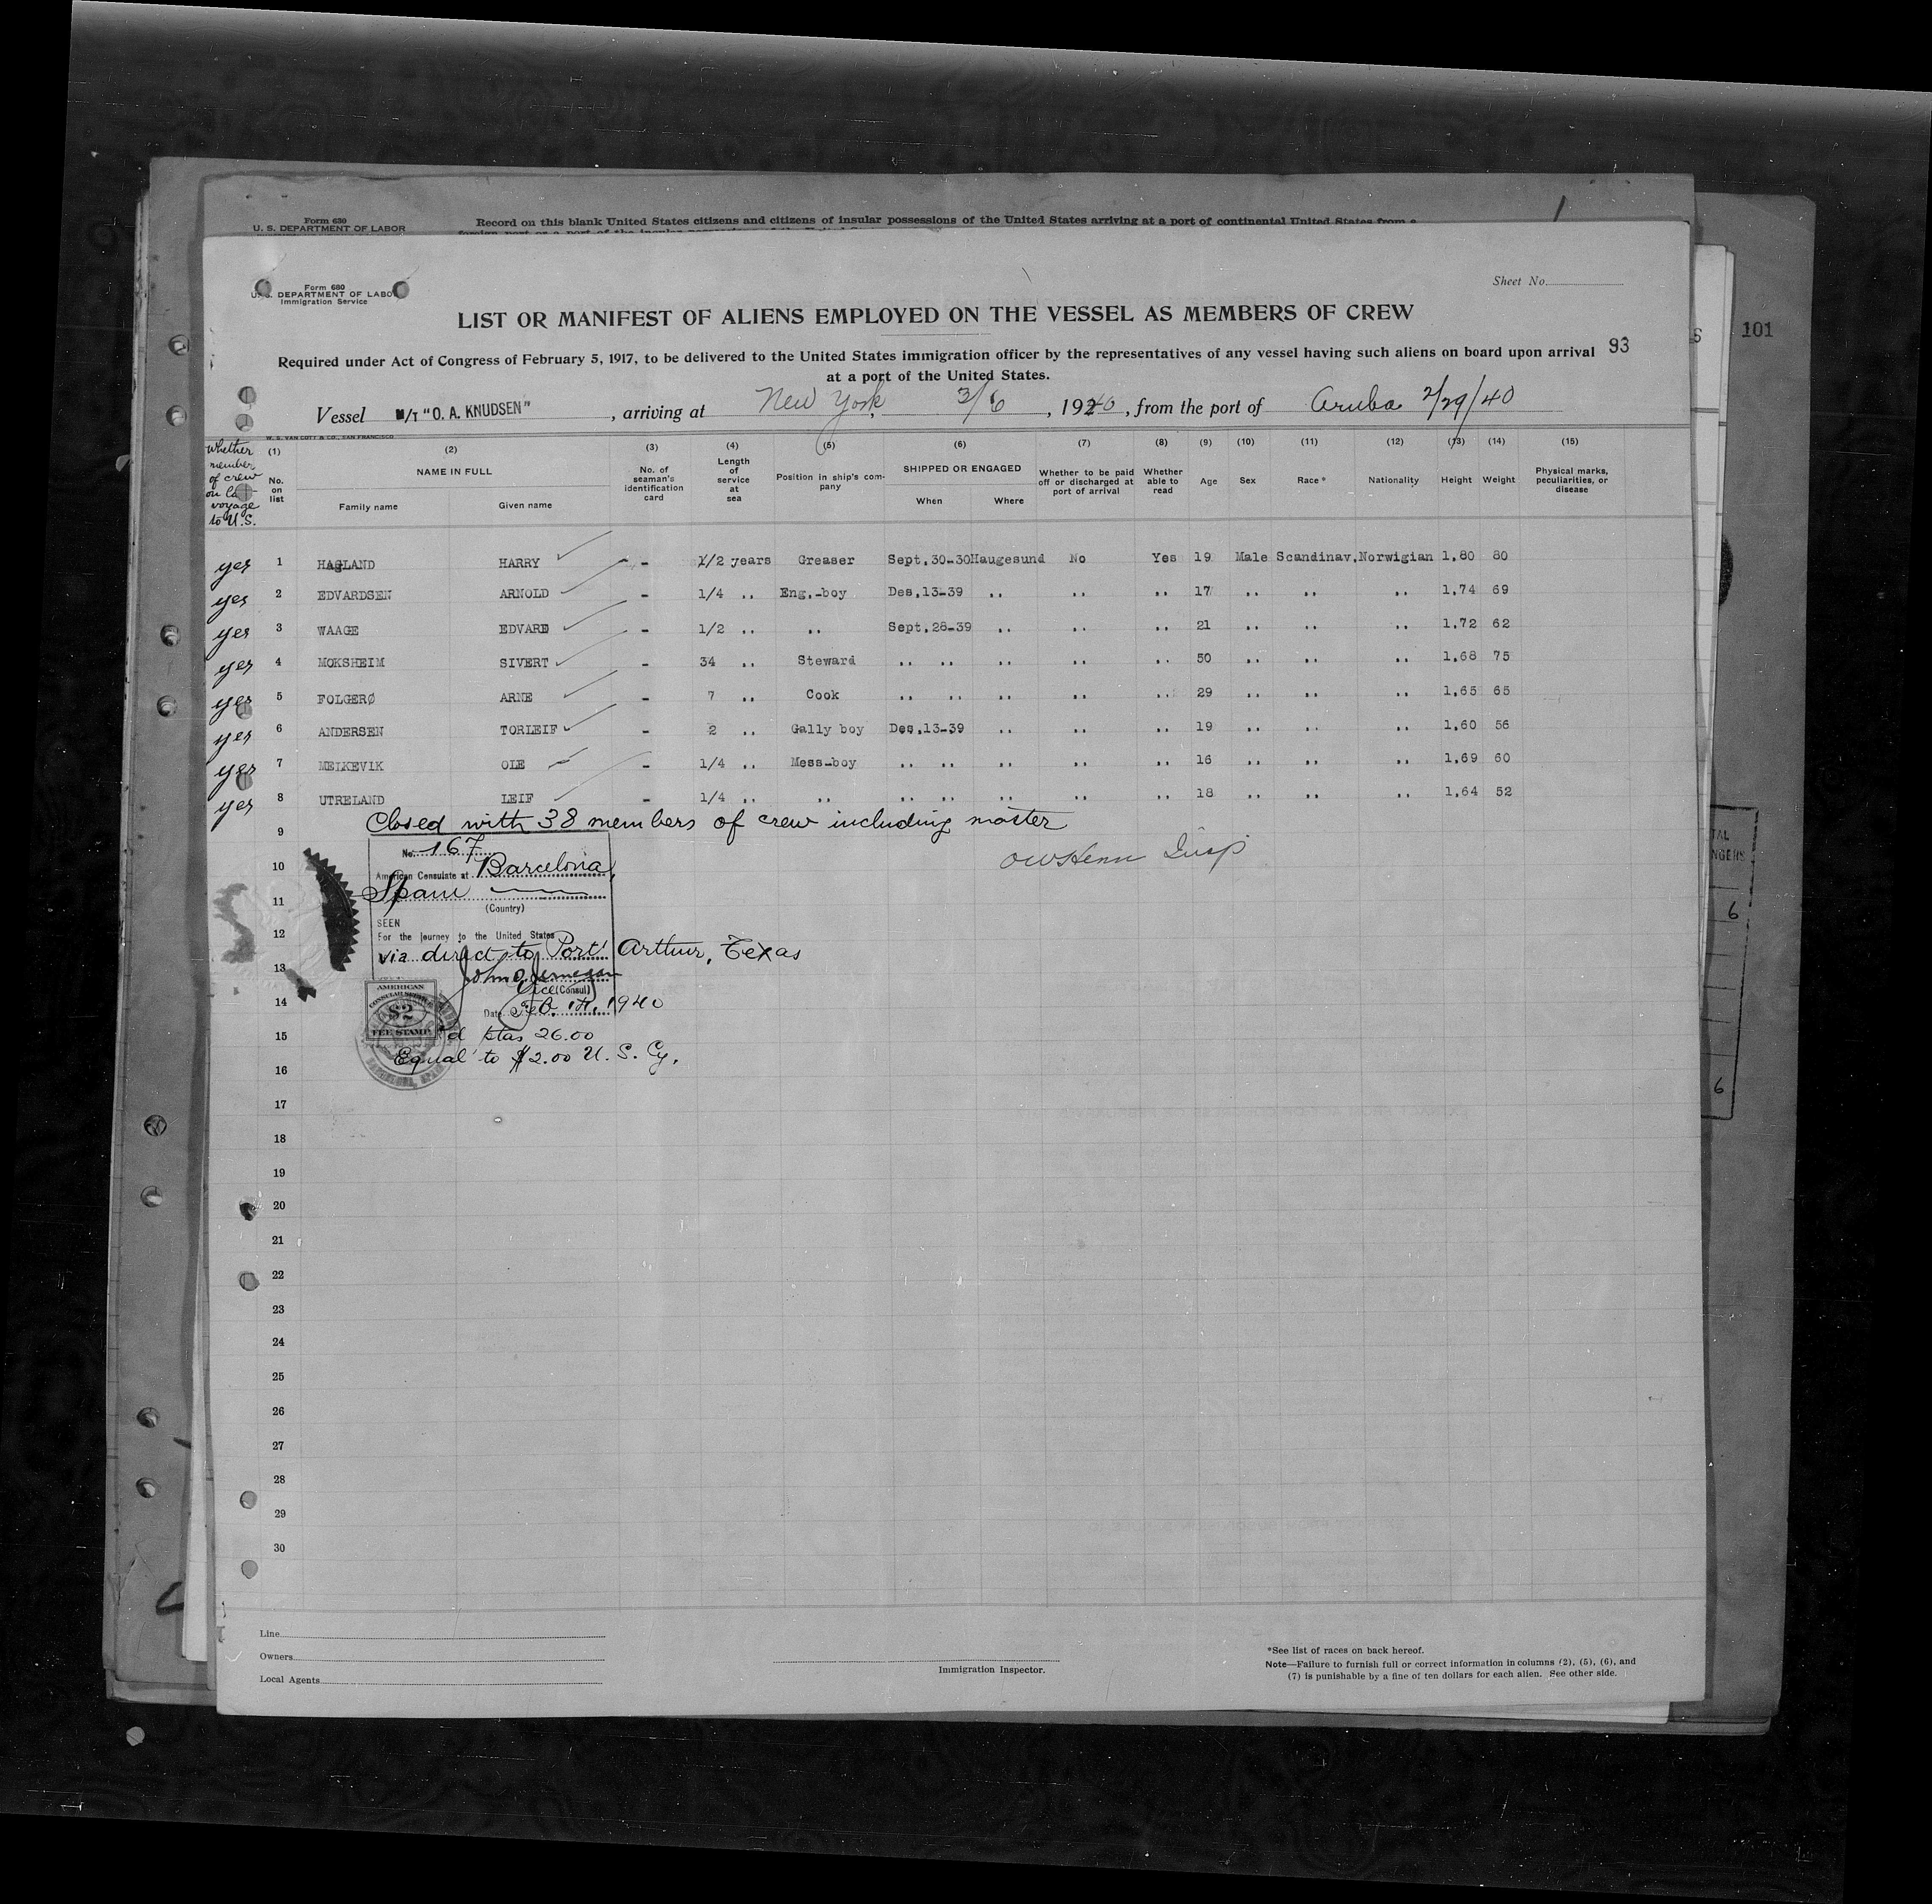 Form 630
U. S. DEPARTMENT OF LABOR
Record on this blank United States citizens and citizens of insular possessions of the United States arriving at a port of continental United States from a
1
101
Form 680
U. S. DEPARTMENT OF LABOR
Immigration Service
Sheet No.
LIST OR MANIFEST OF ALIENS EMPLOYED ON THE VESSEL AS MEMBERS OF CREW
93
Required under Act of Congress of February 5, 1917, to be delivered to the United States immigration officer by the representatives of any vessel having such aliens on board upon arrival
at a port of the United States.
Vessel M/T "O. A. KNUDSEN", arriving at New York, 3/6, 1940, from the port of Aruba 2/29/40
W. S. VAN COTT & CO., SAN FRANCISCO
Whether member of crew on last voyage to U.S.
(1) (2) (3) (4) (5) (6) (7) (8) (9) (10) (11) (12) (13) (14) (15)
No. on list NAME IN FULL No. of seaman's identification card Length of service at sea Position in ship's company SHIPPED OR ENGAGED Whether to be paid off or discharged at port of arrival Whether able to read Age Sex Race* Nationality Height Weight Physical marks, peculiarities, or disease
Family name Given name When Where
yes 1 HAGLAND HARRY - 1/2 years Greaser Sept.30-30 Haugesund No Yes 19 Male Scandinav. Norwigian 1,80 80
yes 2 EDVARDSEN ARNOLD - 1/4 .. Eng.-boy Des.13-39 .. .. .. 17 .. .. .. 1,74 69
yes 3 WAAGE EDVARD - 1/2 .. .. Sept.28-39 .. .. .. 21 .. .. .. 1,72 62
yes 4 MOKSHEIM SIVERT - 34 .. Steward .. .. .. .. .. 50 .. .. .. 1,68 75
yes 5 FOLGERØ ARNE - 7 .. Cook .. .. .. .. .. 29 .. .. .. 1,65 65
yes 6 ANDERSEN TORLEIF - 2 .. Gally boy Des.13-39 .. .. .. 19 .. .. .. 1,60 56
yes 7 MELKEVIK OLE - 1/4 .. Mess-boy .. .. .. .. .. 16 .. .. .. 1,69 60
yes 8 UTRELAND LEIF - 1/4 .. .. .. .. .. .. .. 18 .. .. .. 1,64 52
Closed with 38 members of crew including master
9
No. 167
10
American Consulate at Barcelona,
Spain
11
(Country)
SEEN
12
For the journey to the United States
via direct to Port Arthur, Texas
13
John D Jernegan
Vice (Consul)
14
Date Feb. 1940
AMERICAN
CONSULAR SERVICE
$2
FEE STAMP
15
ptas 26.00
Equal to $2.00 U. S. Cy.
16
17
18
19
20
21
22
23
24
25
26
27
28
29
30
Line
Owners
Local Agents
Immigration Inspector.
*See list of races on back hereof.
Note—Failure to furnish full or correct information in columns (2), (5), (6), and
(7) is punishable by a fine of ten dollars for each alien. See other side.
6
6